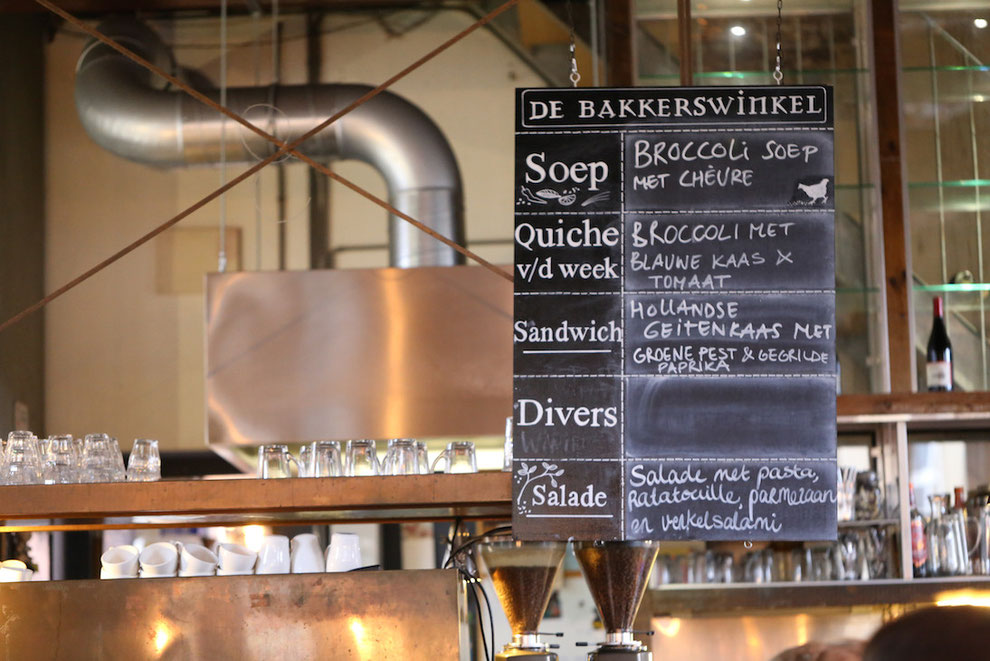 DE BAKKERSWINKEL
Soep
BROCCOLI SOEP
MET CHÈVRE
Quiche
v/d week
BROCCOLI MET
BLAUWE KAAS &
TOMAAT
Sandwich
HOLLANDSE
GEITENKAAS MET
GROENE PEST & GEGRILDE
PAPRIKA
Divers
Salade
Salade met pasta,
Ratatouille, parmezaan
en venkelsalami